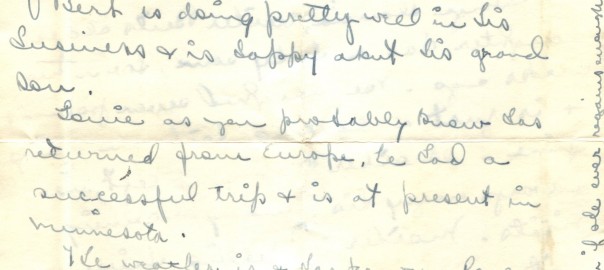 Bert is doing pretty well in his
business & is happy about his grand
son.
as you probably know has
returned from Europe, he had a
successful trip & is at present in
Minnesota.
The weather is
if she ever regains enough